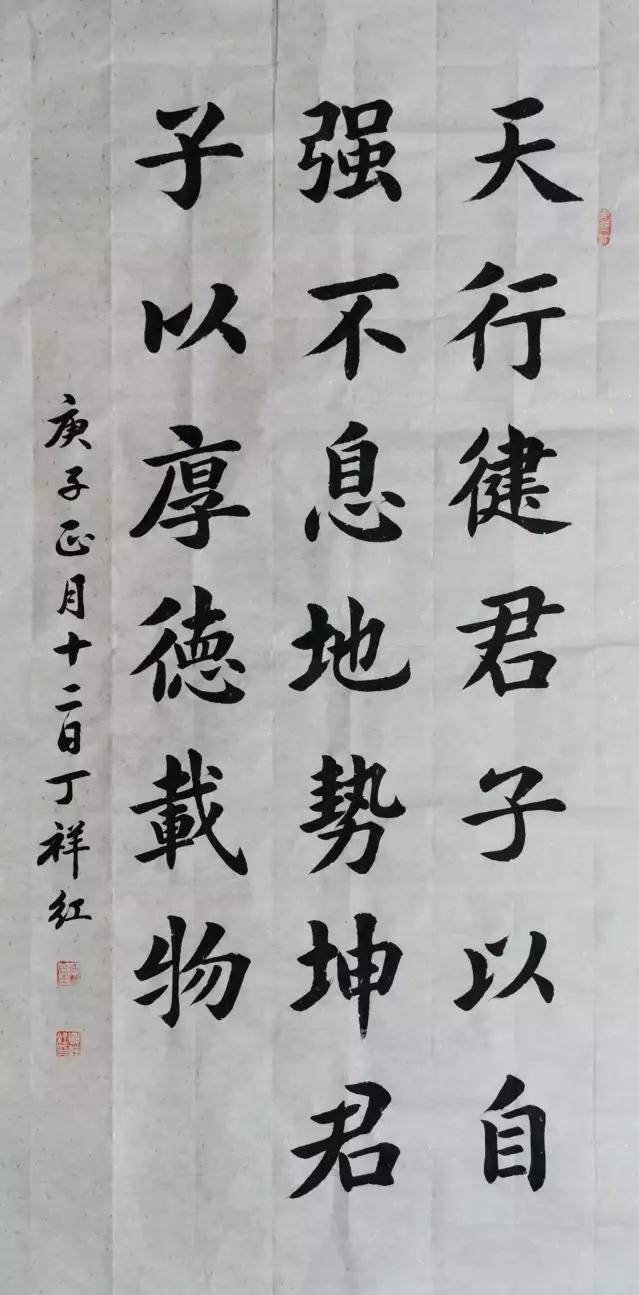 天行健君子以自
强不息地势坤君
子以厚德載物
庚子正月十二日丁祥红